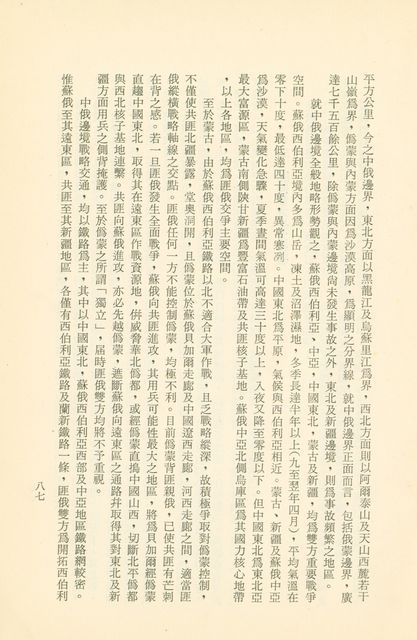 平方公里，今之中俄邊界，東北方面以黑龍江及烏蘇里江爲界，西北方面則以阿爾泰山及天山西麓若干
山嶺爲界，僞蒙與內蒙方面因爲沙漠高原，爲顯明之分界線，就中俄邊界正面而言，包括俄蒙邊界，廣
達七千五百餘公里，除僞蒙與內蒙邊境尙未發生事故之外，東北及新疆邊境，則爲事故頻繁之地區。
就中俄邊境全般地略形勢觀之，蘇俄西伯利亞、中亞，中國東北，蒙古及新疆，均爲雙方重要戰爭
空間。蘇俄西伯利亞境內多爲山岳，凍土及沼澤濕地，冬季長達半年以上（九至翌年四月），平均氣溫在
零下十度，最低達四十度，異常寒冽。中國東北爲平原，氣候與西伯利亞相近。蒙古、新疆及蘇俄中亞
爲沙漠，天氣變化急驟，夏季晝間氣溫可高達三十度以上，入夜又降至零度以下。但中國東北爲東北亞
最大富源區，蒙古南側陝甘新疆爲豐富石油帶及共匪核子基地。蘇俄中亞北側烏庫區爲其國力核心地帶
，以上各地區，均爲匪俄交爭主要空間。
至於蒙古，由於蘇俄西伯利亞鐵路以北不適合大軍作戰，且乏戰略縱深，故積極爭取對僞蒙控制，
不僅使共匪北疆暴露，堂奧洞開，且僞蒙位於蘇俄貝加爾走廊及中國遼西走廊，河西走廊之間，適當匪
俄縱橫戰略軸線之交點。匪俄任何一方不能控制僞蒙，均極不利。目前僞蒙背匪親俄，已使共匪有芒刺
在背之感。若一旦匪俄發生全面戰爭，蘇俄向共匪進攻，其用兵可能性最大之地區，將爲貝加爾經僞蒙
直趨中國東北，取得其在遠東區作戰資源地，併威脅華北僞都，或經僞蒙直搗中國山西，切斷北平僞都
與西北核子基地連繫。共匪向蘇俄進攻，亦必先越僞蒙，遮斷蘇俄向遠東區之通路幷取得其對東北及新
疆方面用兵之側背掩護。至於僞蒙之所謂「獨立」，屆時匪俄雙方均將不予重視。
中俄邊境戰略交通，均以鐵路爲主，其中以中國東北，蘇俄西伯利亞西部及中亞地區鐵路網較密。
惟蘇俄至其遠東區，共匪至其新疆地區，各僅有西伯利亞鐵路及蘭新鐵路一條，匪俄雙方爲開拓西伯利
八七